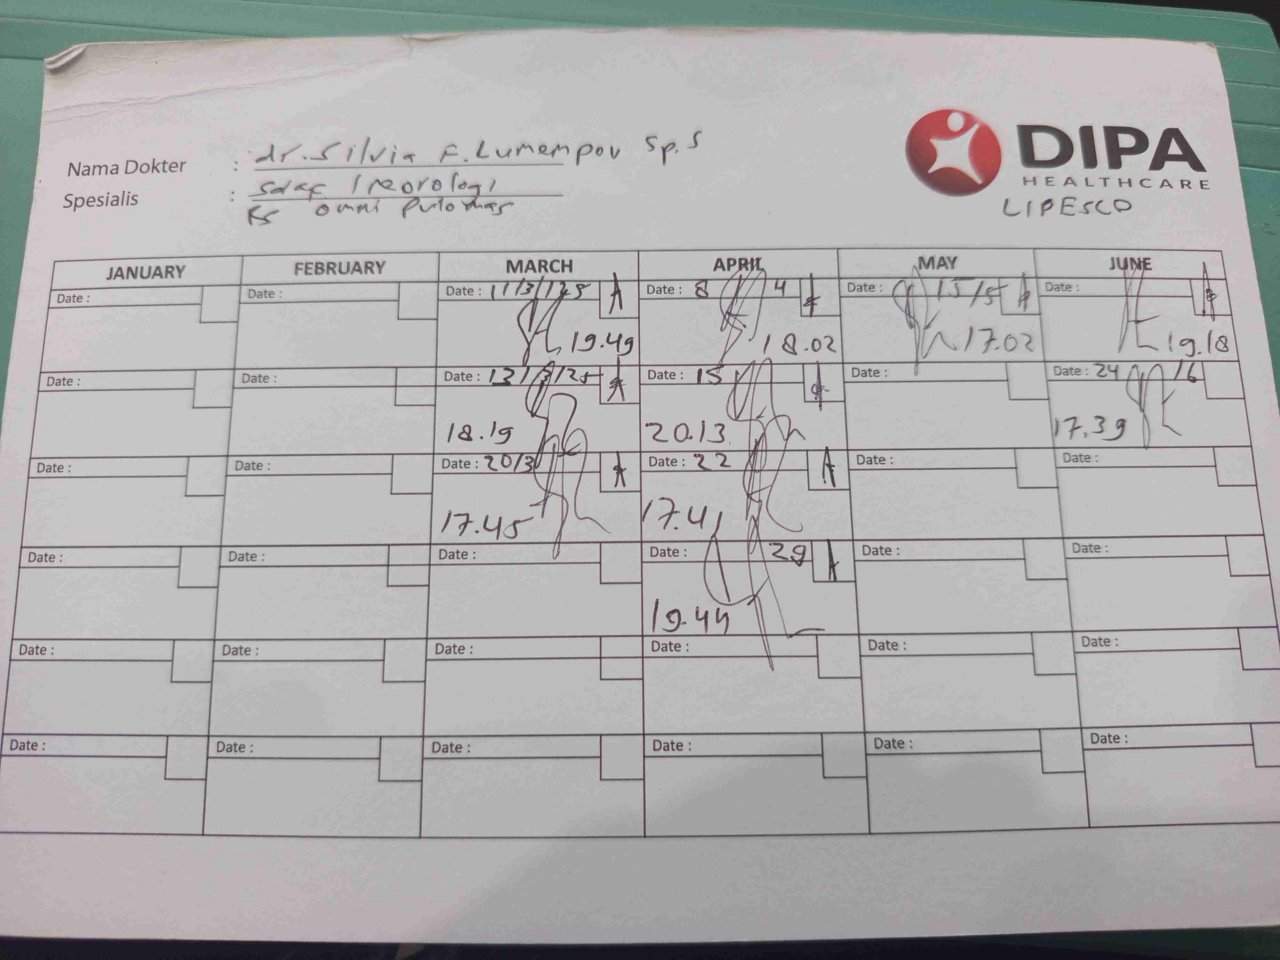 Nama Dokter : dr. Silvia F. Lumempov Sp.S
Spesialis : Saraf / Neorologi
RS omni Pulomas
DIPA
HEALTHCARE
LIPESCO
JANUARY FEBRUARY MARCH APRIL MAY JUNE
Date : Date : Date : 11/3/25 A Date : 8 4 A Date : 15/5 A Date : A
19.49 18.02 17.02 19.18
Date : Date : Date : 13/3/25 A Date : 15 Date : Date : 24 /6
18.19 20.13 17.39
Date : Date : Date : 20/3 A Date : 22 A Date : Date :
17.45 17.41
Date : Date : Date : Date : 29 A Date : Date :
19.44
Date : Date : Date : Date : Date : Date :
Date : Date : Date : Date : Date : Date :